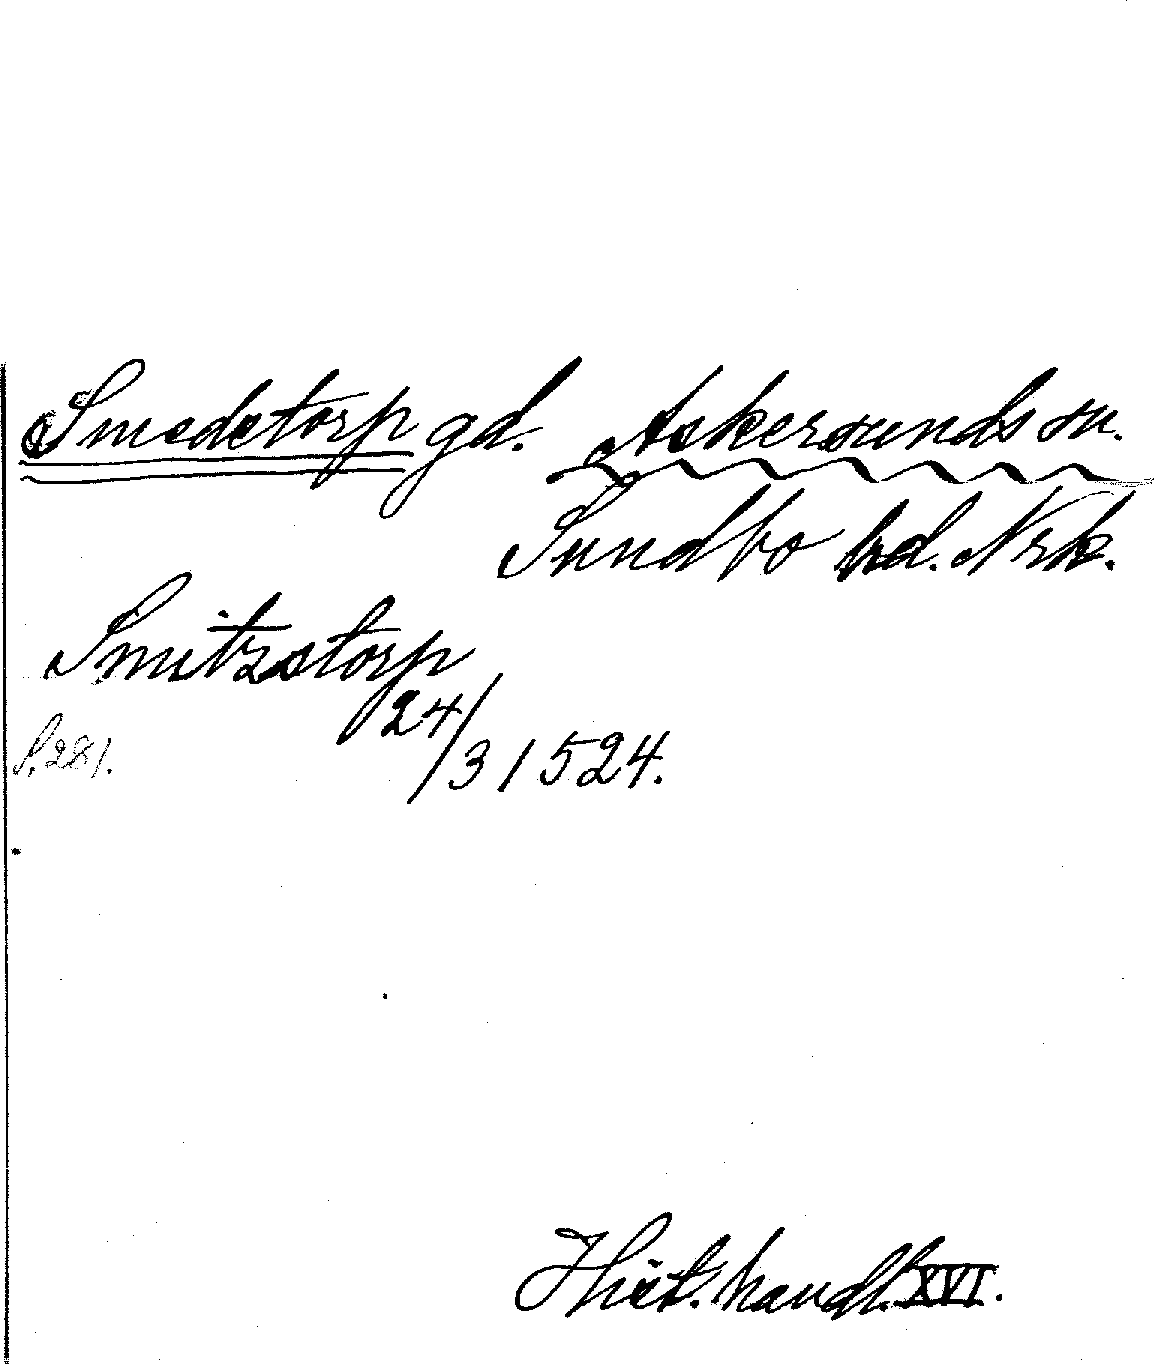 Smedetorp gd. Askersunds sn.
Sundbo hd. Nrk.
Smitzstorp
24/3 1524.
S. 281.
Hist. handl. XVI.